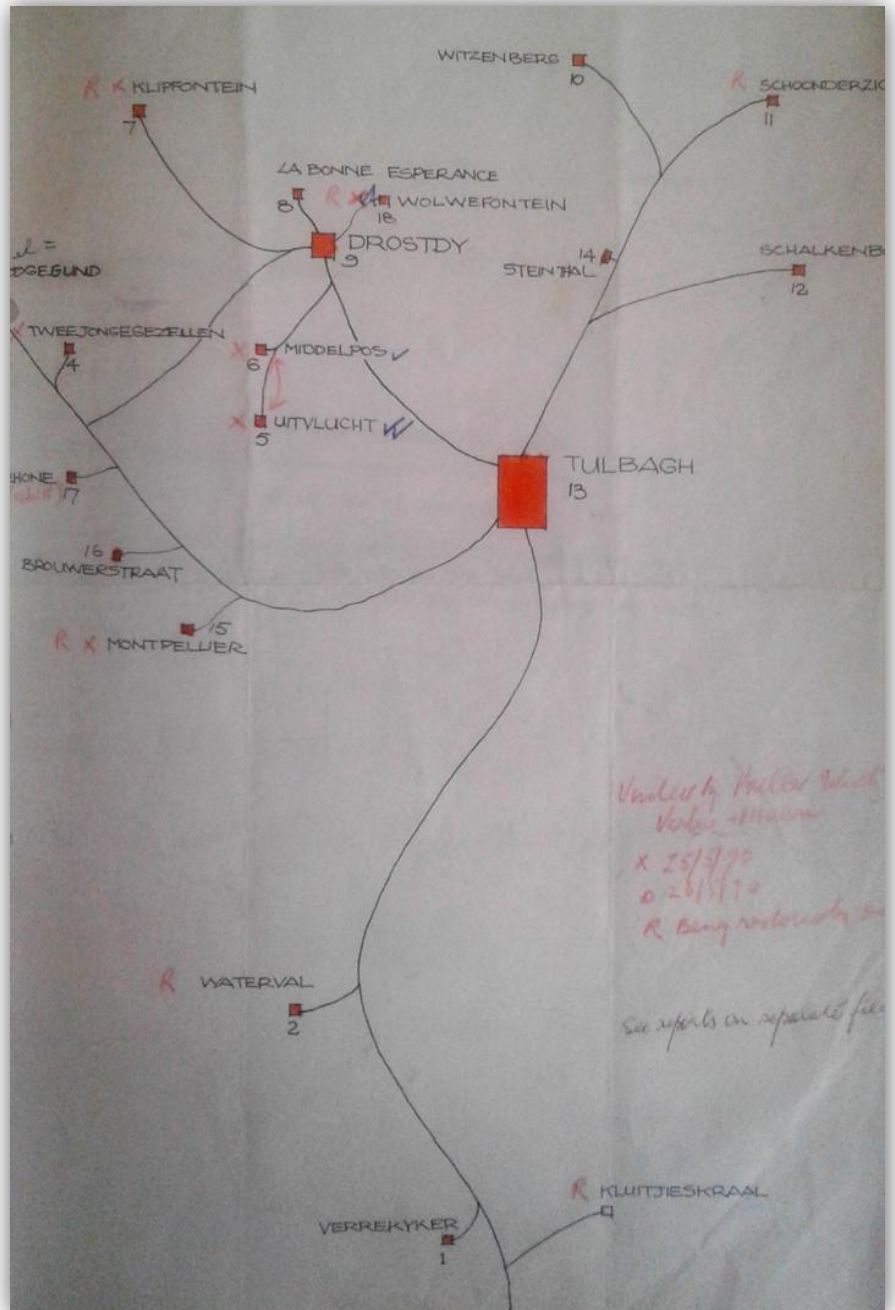 WITZENBERG
10
R X KLIPFONTEIN
7
R SCHOONDERZIC
11
LA BONNE ESPERANCE
8
R X WOLWEFONTEIN
18
DROSTDY
9
14
STEINTHAL
SCHALKENB
12
DGEGUND
X TWEEJONGEGEZELLEN
4
X MIDDELPOS ✓
6
X UITVLUCHT
5
TULBAGH
13
HONE
17
16
BROUWERSTRAAT
15
R X MONTPELLIER
X 25/5/70
R Being
R WATERVAL
2
See reports on separate
R KLUITJIESKRAAL
VERREKYKER
1